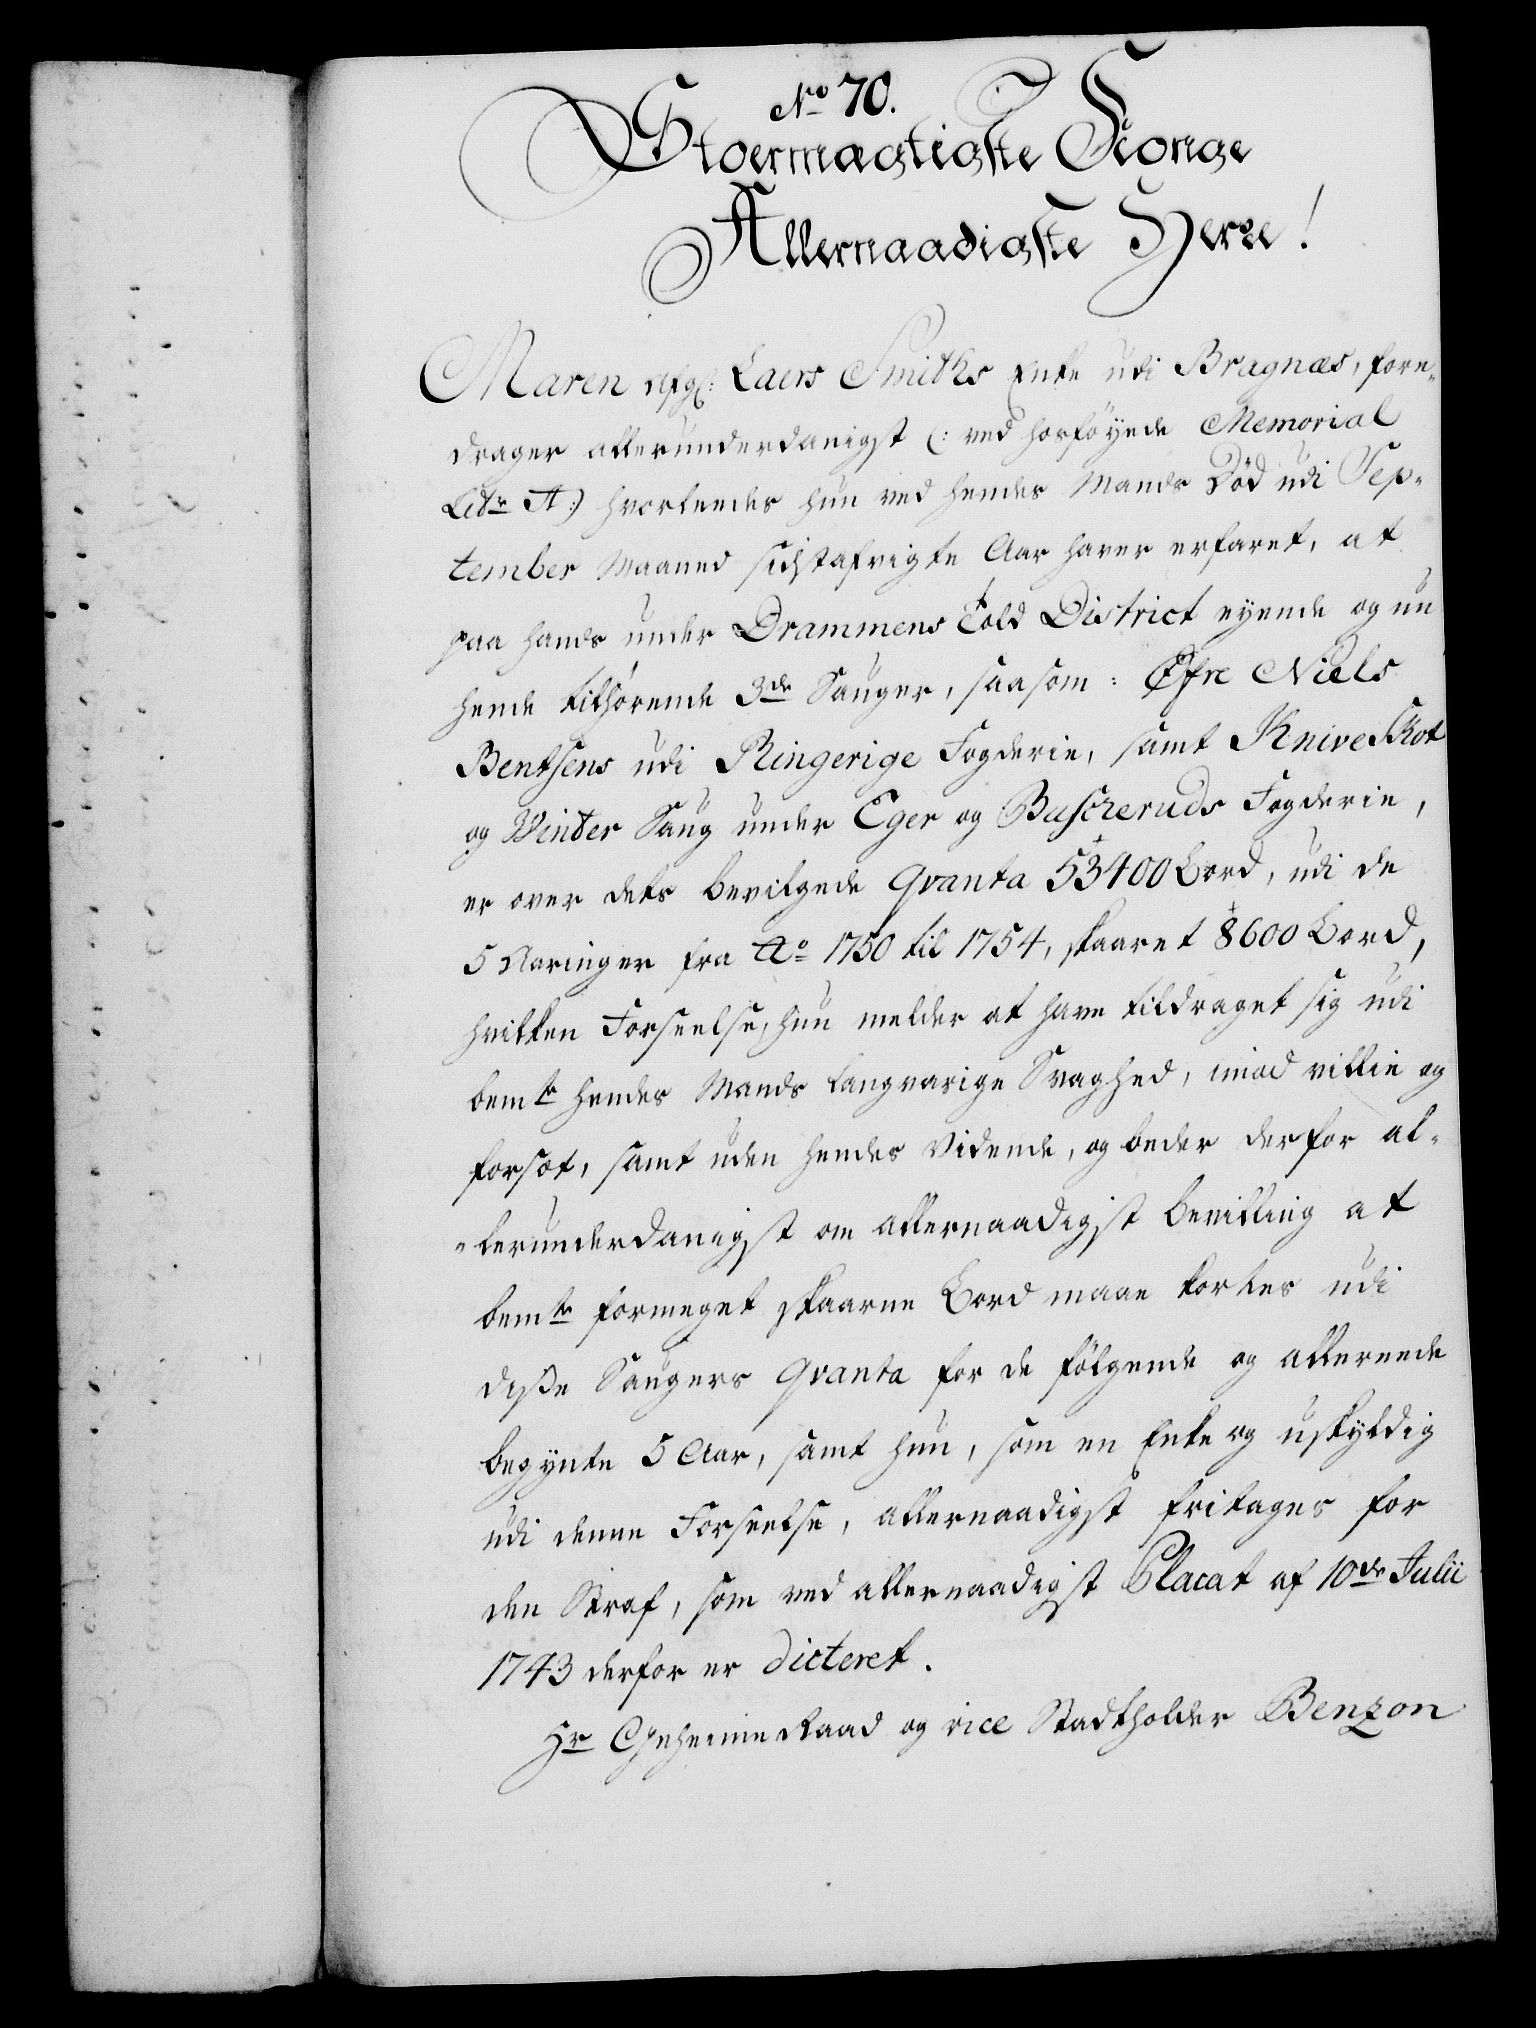 No 70.
Stoermægtigste Konge
Allernaadigste Herre!
Maren afgl: Laers Smiths Enke udi Bragnæs, fore-
drager allerunderdanigst (: ved hosföyede Memorial
Litr A:) hvorledes hun ved hendes Mands Död udi Sep-
tember Maaned sidstafvigte Aar haver erfaret, at
paa hands under Drammens Told District eyende og nu
hende tilhörende 3de Sauger, saasom: Öfre Niels
Bentsens udi Ringerige Fogderie, samt Knive Skot
og Vinter Saug under Eger og Buscheruds Fogderie,
er over dets bevilgede qvanta 53400 Bord, udi de
5 Aaringer fra Ao 1750 til 1754, skaaret 8600 Bord,
hvilken Forseelse, hun melder at have tildraget sig udi
bemte hendes Mands langvarige Svaghed, imod villie og
forsæt, samt uden hendes Vidende, og beder derfor al-
-lerunderdanigst om allernaadigst bevilling at
bemte formeget skaarne Bord maae kortes udi
disse Saugers qvanta for de fölgende og allereede
begynte 5 Aar, samt hun, som en Enke og uskyldig
udi denne Forseelse, allernaadigst fritages for
den Straf, som ved allernaadigst Placat af 10de Julii
1743 derfor er dicteret.
Hr Geheime Raad og vice Stadtholder Benzon